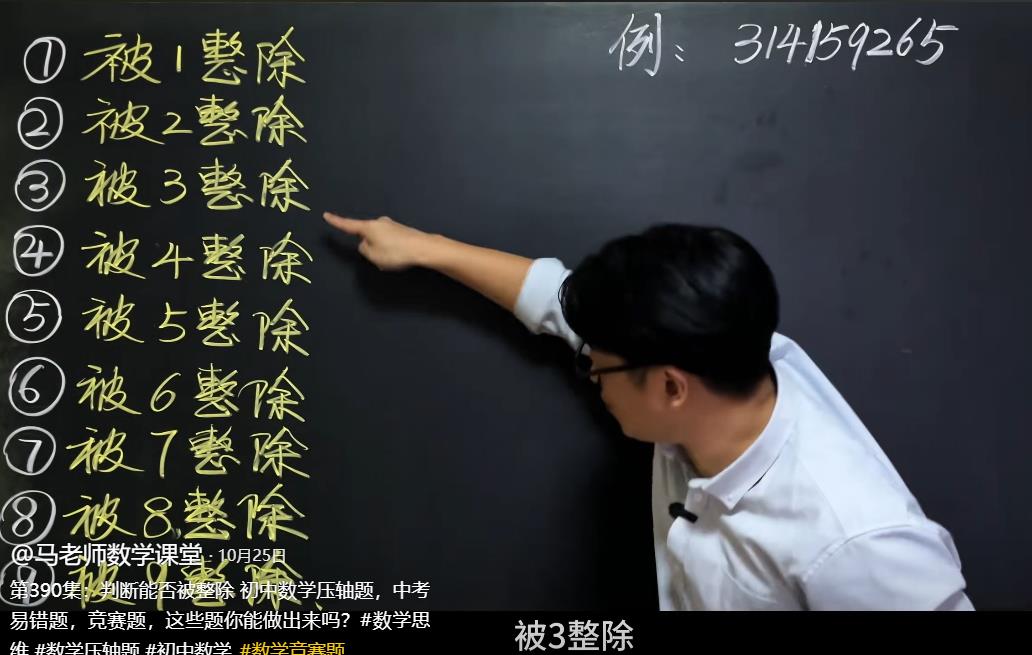 ① 被1整除
例: 314159265
② 被2整除
③ 被3整除
④ 被4整除
⑤ 被5整除
⑥ 被6整除
⑦ 被7整除
⑧ 被8整除
⑨ 被9整除
@马老师数学课堂 · 10月25日
第390集：判断能否被整除 初中数学压轴题，中考
易错题，竞赛题，这些题你能做出来吗？#数学思
维 #数学压轴题 #初中数学 #数学竞赛题
被3整除